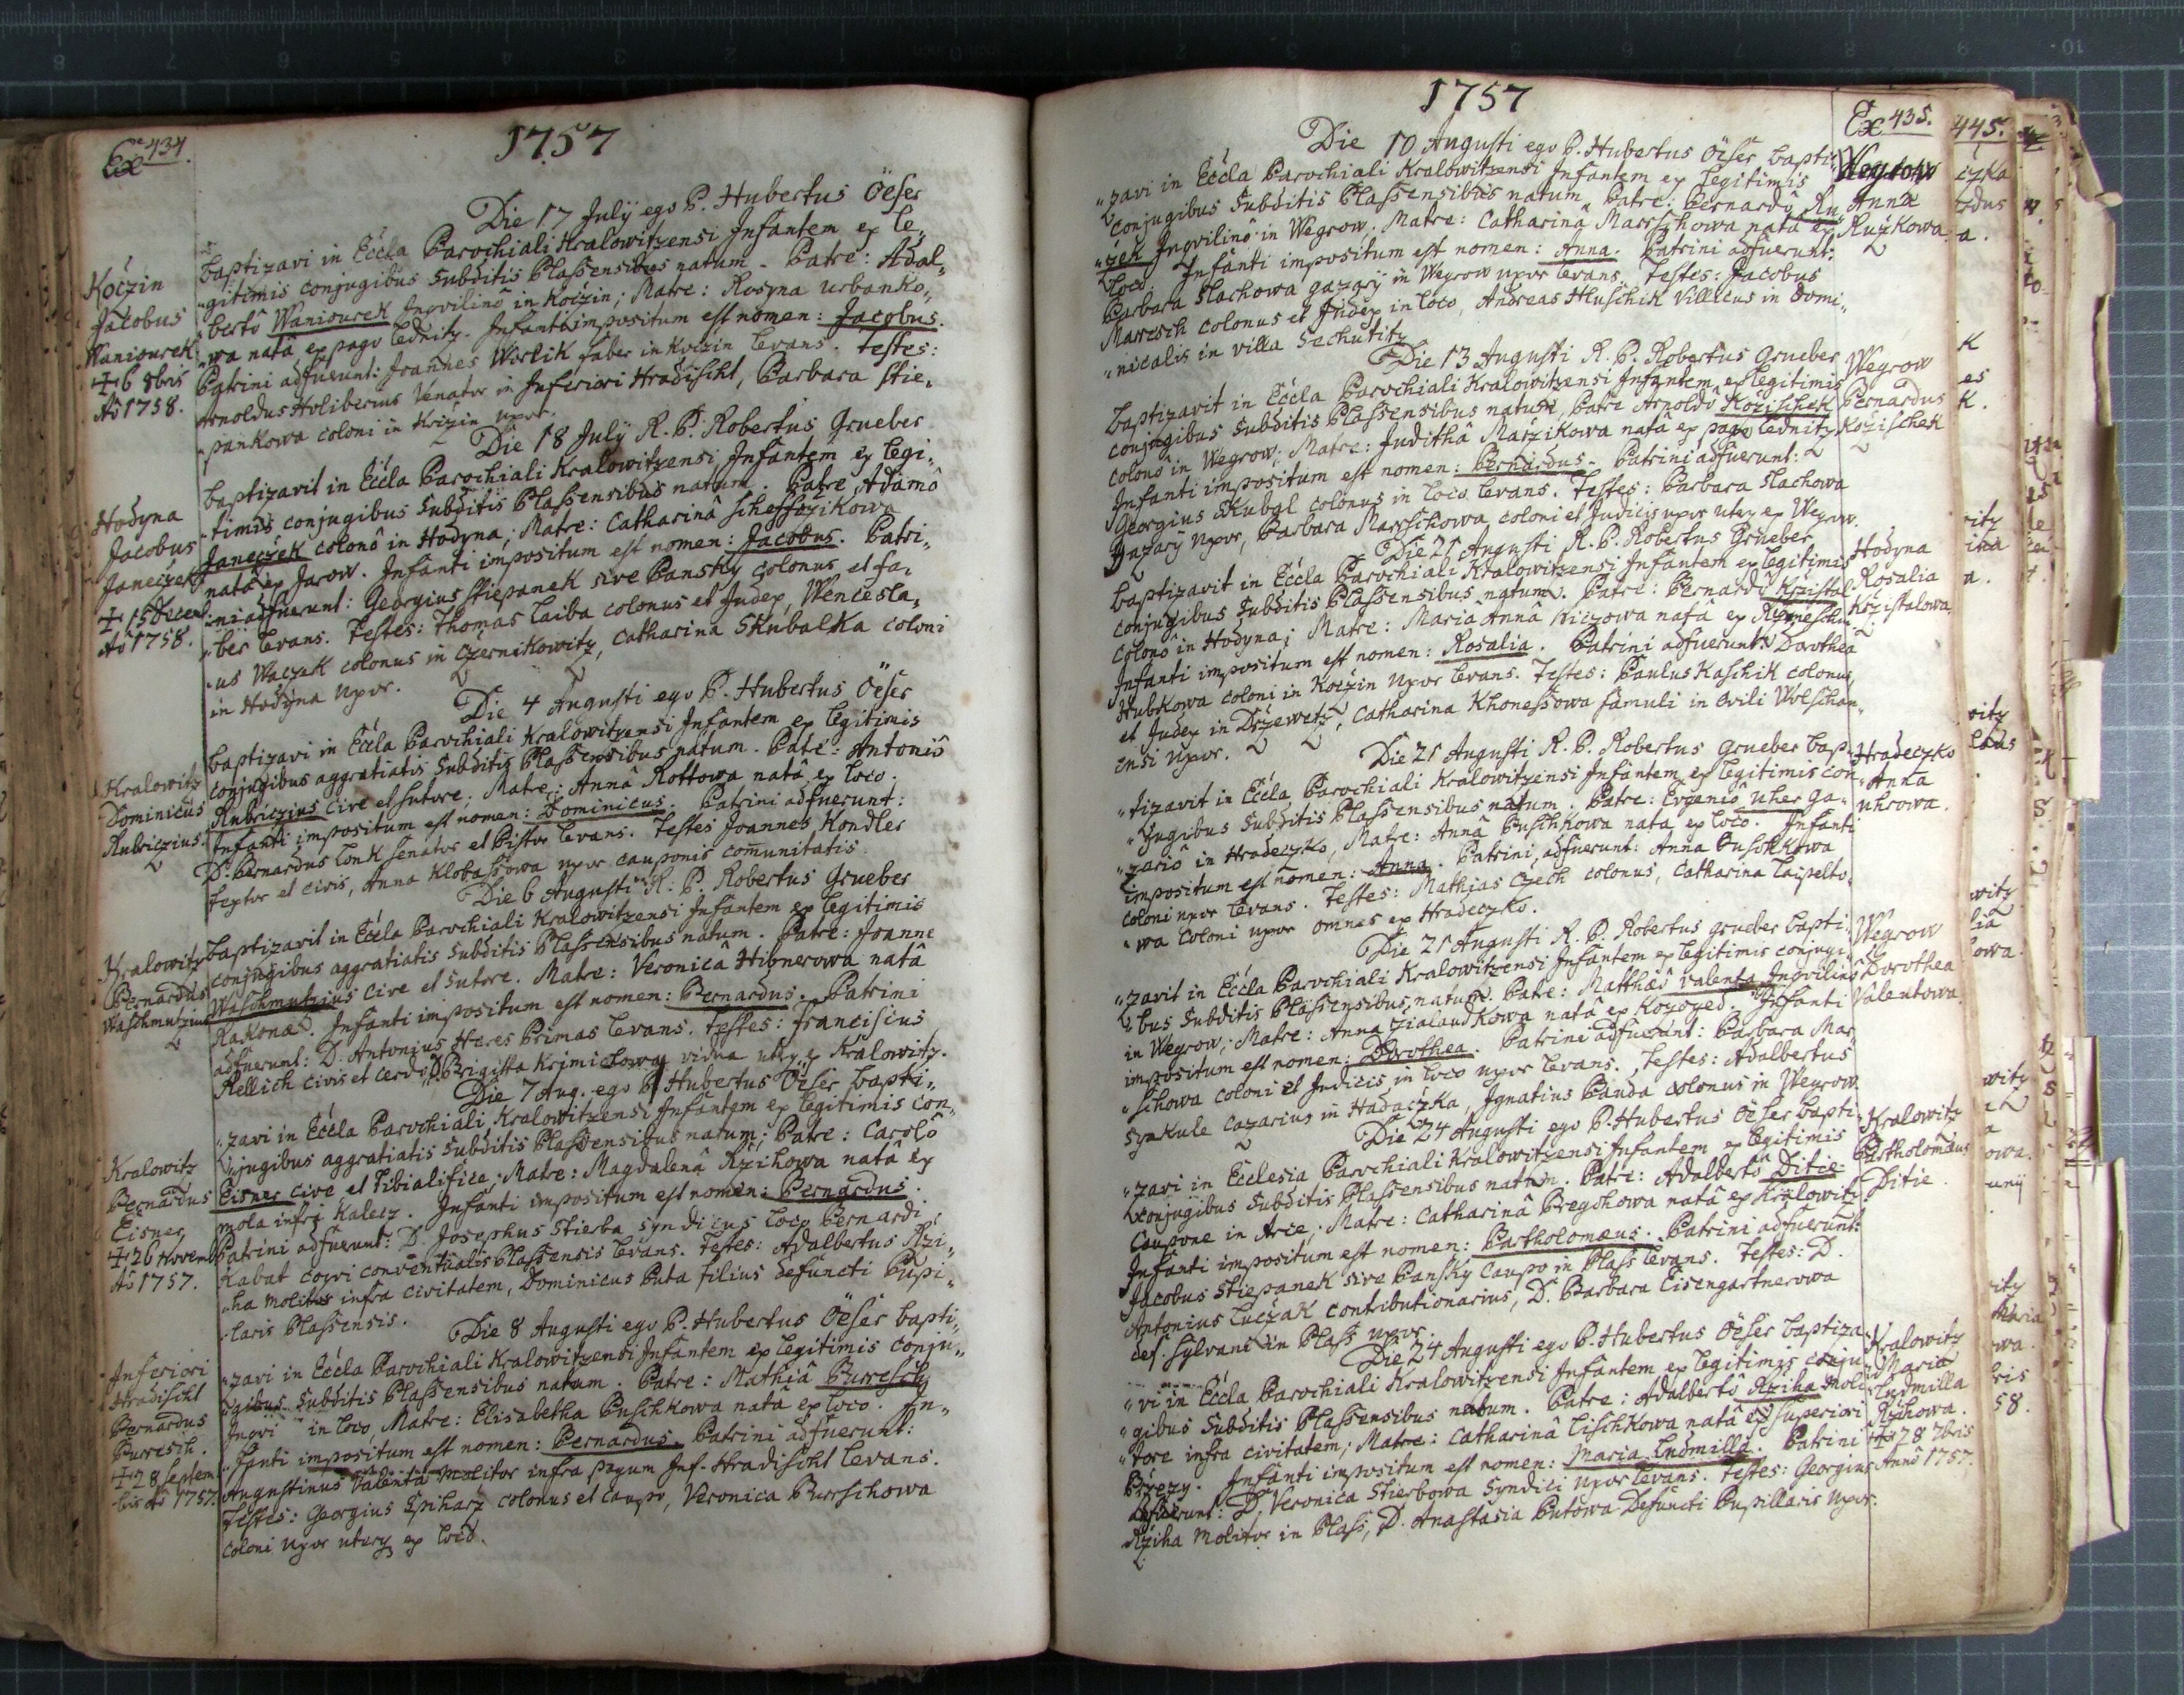 Ex 434.
1757
Die 17 Julÿ ego P. Hubertus Öeser
baptizavi in Eccla Parochiali Kralowitzensi Infantem ex le„
„gitimis conjugibus Subditis Plassensibus natum. Patre: Adal„
„bertô Waniourek Inqvilinô in Koczin; Matre: Rosyna Urbanko„
„wa natâ ex pago Lednitz. Infanti impositum est nomen: Jacobus.
Patrini adfuerunt: Joannes Worlik faber in Koczin levans. Testes:
Arnoldus Holiberius Venator in Inferiori Hradischt, Barbara Stie„
„pankowa coloni in Koczin uxor.
Koczin
Jacobus
Waniourek
+ 6 8bris
Aô 1758.
Die 18 Julÿ R. P. Robertus Grueber
baptizavit in Eccla Parochiali Kralowitzensi Infantem ex legi„
„timis conjugibus Subditis Plassensibus natum. Patre, Adamô
Janeczek colonô in Hodyna; Matre: Catharinâ
natâ ex Jarow. Infanti impositum est nomen: Jacobus. Patri„
„ni adfuerunt: Georgius Stiepanek sive Pansky colonus et fa„
„ber levans. Testes: Thomas Laiba colonus et Judex, Wencesla„
„us Waczek colonus in Czernikowitz, Catharina Skubalka coloni
in Hodyna uxor.
Hodyna
Jacobus
Janeczek
+ 15 Decem
Aô 1758.
Die 4 Augusti ego P. Hubertus Öeser
baptizavi in Eccla Parochiali Kralowitzensi Infantem ex legitimis
conjugibus aggratiatis Subditis Plassensibus natum. Patre: Antoniô
Rubriczius cive et sutore; Matre: Annâ Rottowa natâ ex loco.
Infanti impositum est nomen: Dominicus. Patrini adfuerunt:
D. Bernardus Lonk Senator et Pistor levans. Testes Joannes Kondler
textor et civis, Anna Klobassowa uxor cauponis comunitatis.
Kralowitz
Dominicus
Rubriczius.
Die 6 Augusti R. P. Robertus Grueber
baptizavit in Eccla Parochiali Kralowitzensi Infantem ex legitimis
conjugibus aggratiatis Subditis Plassensibus natum. Patre: Joanne
Waschmutzius cive et Sutore. Matre: Veronicâ Hibnerowa natâ
Rakonae. Infanti impositum est nomen: Bernardus. Patrini
adfuerunt: D. Antonius Heres Primas levans. Testes: Franciscus
Rellich civis et cerdo, D. Brigitta vidua uterq ex Kralowitz.
Kralowitz
Bernardus
Waschmutzius
Die 7 Aug. ego P. Hubertus Öeser bapti„
„zavi in Eccla Parochiali Kralowitzensi Infantem ex legitimis con„
„jugibus aggratiatis Subditis Plassensibus natum; Patre: Carolô
Eisner cive et Tibialifice; Matre: Magdalenâ Rzihowa natâ ex
mola infra Kalecz. Infanti impositum est nomen: Bernardus.
Patrini adfuerunt: D. Josephus Stierba syndicus loco Bernardi
Kabat coqvi conventualis Plassensis levans. Testes: Adalbertus Rzi„
„ha Molitor infra civitatem, Dominicus Puta filius defuncti Pupi„
„laris Plassensis.
Kralowitz
Bernardus
Eisner
+ 26 Novem
Aô 1757.
Die 8 Augusti ego P. Hubertus Öeser bapti„
„zavi in Eccla Parochiali Kralowitzensi Infantem ex legitimis conju„
„gibus Subditis Plassensibus natum. Patre: Mathiâ Burresch
Inqvi in loco, Matre: Elisabetha Puschkowa natâ ex loco. In„
„fanti impositum est nomen: Bernardus. Patrini adfuerunt:
Augustinus Valenta Molitor infra pagum Inf. Hradischt levans.
Testes: Georgius Epiharz colonus et caupo, Veronica Burrschowa
coloni uxor uterq ex loco.
Inferiori
Hradischt
Bernardus
Burresch.
+ 28 Septem
bris Aô 1757.
1757
Ex 435.
Die 10 Augusti ego P. Hubertus Öeser bapti„
„zavi in Eccla Parochiali Kralowitzensi Infantem ex legitimis
conjugibus Subditis Plassensibus natum, Patre: Bernardô Ru„
„zek Inqvilinô in Wegrow. Matre: Catharinâ Marrschowa natâ ex
loco. Infanti impositum est nomen: Anna. Patrini adfuerunt:
Barbara Slachowa gazarÿ in Wegrow uxor levans, Testes: Jacobus
Marzsch colonus et Judex in loco, Andreas Hluschik Villicus in Domi„
„nicalis in villa Sechutitz
Wegrow
Anna
Ruzkowa
Die 13 Augusti R. P. Robertus Grueber
baptizavit in Eccla Parochiali Kralowitzensi Infantem ex legitimis
conjugibus Subditis Plassensibus natum, Patre Arnoldô Kozischek
colonô in Wegrow; Matre: Judithâ Marzikowa natâ ex pago Lednitz
Infanti impositum est nomen: Bernardus. Patrini adfuerunt:
Georgius Skubal colonus in loco levans. Testes: Barbara Slachowa
gazarÿ uxor, Barbara Marrschowa coloni et Judicis uxor uterq ex Wegrow.
Wegrow
Bernardus
Kozischek
Die 21 Augusti R. P. Robertus Grueber
baptizavit in Eccla Parochiali Kralowitzensi Infantem ex legitimis
conjugibus Subditis Plassensibus natum. Patre: Bernardô Krzistal
colonô in Hodyna; Matre: Maria Anna natâ ex
Infanti impositum est nomen: Rosalia. Patrini adfuerunt: Dorothea
Hubkowa coloni in Koczin uxor levans. Testes: Paulus Kaschik colonus
et Judex in Drzewetz, Catharina Khonessowa famuli in Ovili Wolschan„
ensi uxor.
Hodyna
Rosalia
Krzistalowa
Die 21 Augusti R. P. Robertus Grueber bap„
„tizavit in Eccla Parochiali Kralowitzensi Infantem ex legitimis con„
„jugibus Subditis Plassensibus natum. Patre: Eugeniô Uher ga„
„zariô in Hradeczko, Matre: Annâ Puschkowa natâ ex loco. Infanti
impositum est nomen: Anna. Patrini adfuerunt: Anna Puschkowa
coloni uxor levans. Testes: Mathias Czech colonus, Catharina Laipelto„
„wa coloni uxor omnes ex Hradeczko.
Hradeczko
Anna
Uhrowa.
Die 21 Augusti R. P. Robertus Grueber bapti„
„zavit in Eccla Parochiali Kralowitzensi Infantem ex legitimis conjugi„
„bus Subditis Plassensibus natum. Patre: Matthaeô Valenta Inqvilinô
in Wegrow; Matre: Anna Zialaudkowa natâ ex Kozoged. Infanti
impositum est nomen: Dorothea. Patrini adfuerunt: Barbara Mar„
„schowa coloni et Judicis in loco uxor levans. Testes: Adalbertus
Synkule Cazarius in Hadaczka, Ignatius Panda colonus in Wegrow.
Wegrow
Dorothea
Valentowa
Die 24 Augusti ego P. Hubertus Öeser bapti„
„zavi in Ecclesia Parochiali Kralowitzensi Infantem ex legitimis
conjugibus Subditis Plassensibus natum. Patre: Adalbertô Ditie
Caupone in Arce, Matre: Catharinâ Bregschowa natâ ex Kralowitz.
Infanti impositum est nomen: Bartholomaeus. Patrini adfuerunt:
Jacobus Stiepanek sive Pansky Caupo in Plass levans. Testes: D.
Antonius Luczak contributionarius, D. Barbara Eisengartnerowa
caes. Sylvani in Plass uxor.
Kralowitz
Bartholomaeus
Ditie
Die 24 Augusti ego P. Hubertus Öeser baptiza„
„vi in Eccla Parochiali Kralowitzensi Infantem ex legitimis conju„
„gibus Subditis Plassensibus natum. Patre: Adalbertô Rziha Moli„
„tore infra civitatem; Matre: Catharinâ Lischkowa natâ ex Superiori
Brezy. Infanti impositum est nomen: Maria Ludmilla. Patrini
adfuerunt: D. Veronica Stierbowa Syndici uxor levans. Testes: Georgius
Rziha Molitor in Plass, D. Anastasia Putowa Defuncti Pupillaris uxor.
Kralowitz
Maria
Ludmilla
Rzihowa.
+ 28 7bris
Annô 1757.
445.